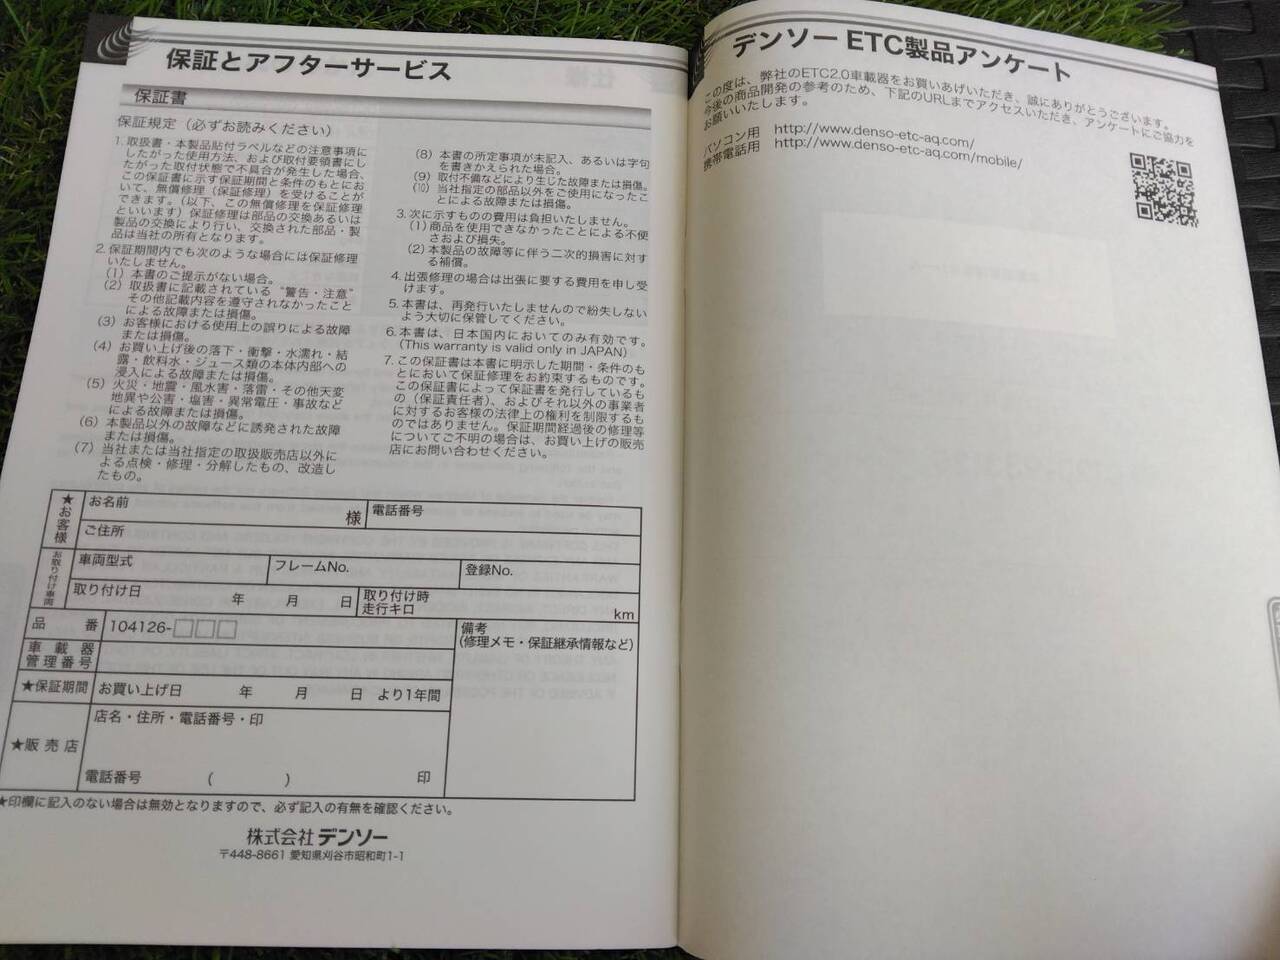 保証とアフターサービス
保証書
保証規定（必ずお読みください）
1. 取扱書・本製品貼付ラベルなどの注意事項に
したがった使用方法、および取付要領書にし
たがった取付状態で不具合が発生した場合、
この保証書に示す保証期間と条件のもとにお
いて、無償修理（保証修理）を受けることが
できます。（以下、この無償修理を保証修理
といいます）保証修理は部品の交換あるいは
製品の交換により行い、交換された部品・製
品は当社の所有となります。
2. 保証期間内でも次のような場合には保証修理
いたしません。
（1）本書のご提示がない場合。
（2）取扱書に記載されている“警告・注意”
その他記載内容を遵守されなかったこと
による故障または損傷。
（3）お客様における使用上の誤りによる故障
または損傷。
（4）お買い上げ後の落下・衝撃・水濡れ・結
露・飲料水・ジュース類の本体内部への
浸入による故障または損傷。
（5）火災・地震・風水害・落雷・その他天変
地異や公害・塩害・異常電圧・事故など
による故障または損傷。
（6）本製品以外の故障などに誘発された故障
または損傷。
（7）当社または当社指定の取扱販売店以外に
よる点検・修理・分解したもの、改造し
たもの。
（8）本書の所定事項が未記入、あるいは字句
を書きかえられた場合。
（9）取付不備などにより生じた故障または損傷。
（10）当社指定の部品以外をご使用になったこ
とによる故障または損傷。
3. 次に示すものの費用は負担いたしません。
（1）商品を使用できなかったことによる不便
さおよび損失。
（2）本製品の故障等に伴う二次的損害に対す
る補償。
4. 出張修理の場合は出張に要する費用を申し受
けます。
5. 本書は、再発行いたしませんので紛失しない
よう大切に保管してください。
6. 本書は、日本国内においてのみ有効です。
（This warranty is valid only in JAPAN）
7. この保証書は本書に明示した期間・条件のも
とにおいて保証修理をお約束するものです。
この保証書によって保証書を発行しているも
の（保証責任者）、およびそれ以外の事業者
に対するお客様の法律上の権利を制限するも
のではありません。保証期間経過後の修理等
についてご不明の場合は、お買い上げの販売
店にお問い合わせください。
★お客様 お名前 様 電話番号
ご住所
お取り付け車両 車両型式 フレームNo. 登録No.
取り付け日 年 月 日 取り付け時
走行キロ km
品番 104126-□□□ 備考
（修理メモ・保証継承情報など）
車載器
管理番号
★保証期間 お買い上げ日 年 月 日 より1年間
★販売店 店名・住所・電話番号・印
電話番号 （ ） 印
★印欄に記入のない場合は無効となりますので、必ず記入の有無を確認ください。
株式会社 デンソー
〒448-8661 愛知県刈谷市昭和町1-1
デンソー ETC製品アンケート
この度は、弊社のETC2.0車載器をお買いあげいただき、誠にありがとうございます。
今後の商品開発の参考のため、下記のURLまでアクセスいただき、アンケートにご協力を
お願いいたします。
パソコン用 http://www.denso-etc-aq.com/
携帯電話用 http://www.denso-etc-aq.com/mobile/